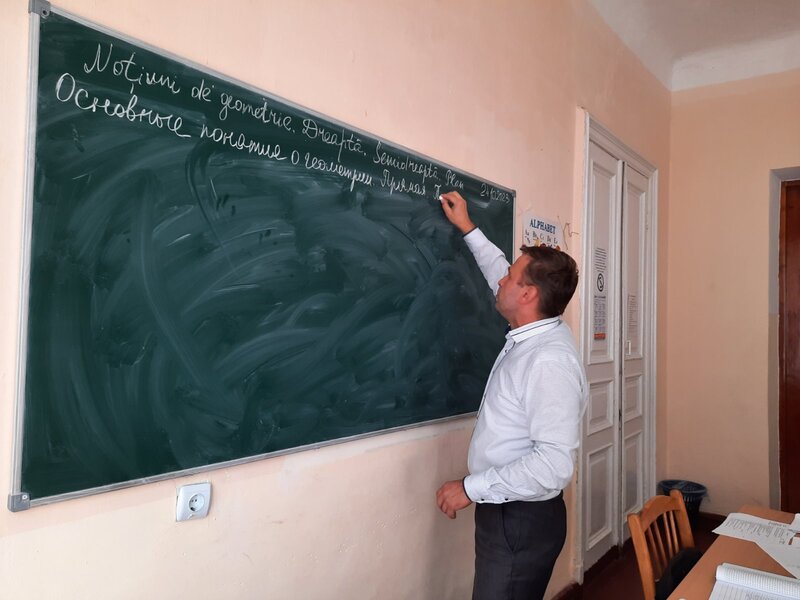 Noțiuni de geometrie. Dreaptă. Semidreaptă. Plan
24.10.2023
Основные понятия о геометрии. Прямая. П
ALPHABET